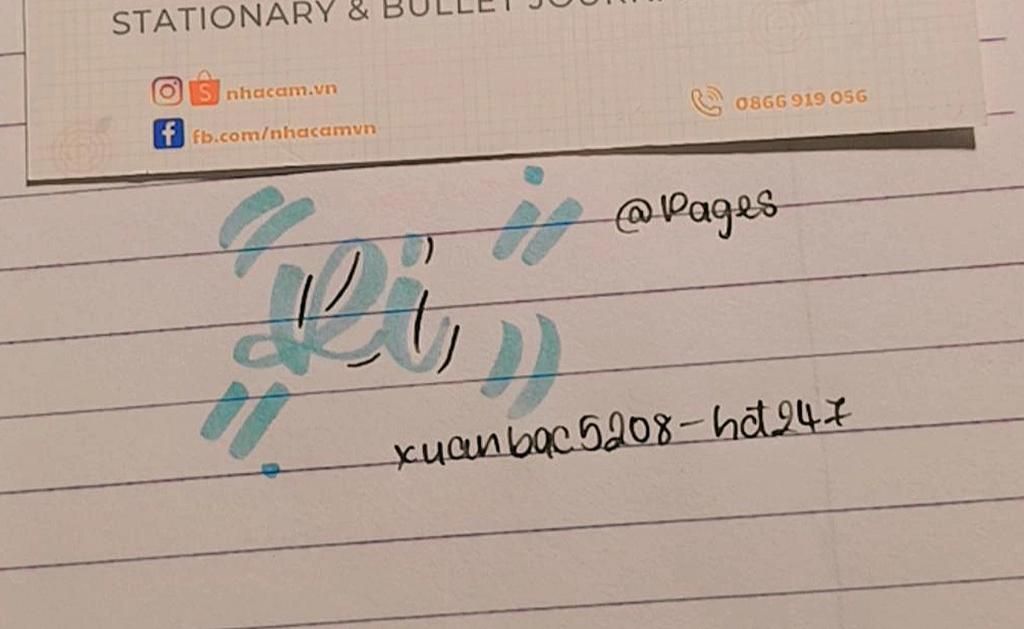 STATIONARY & BULLET JOURNAL
nhacam.vn
fb.com/nhacamvn
0866 919 056
@Pages
Ri
xuanbac5208-hd247